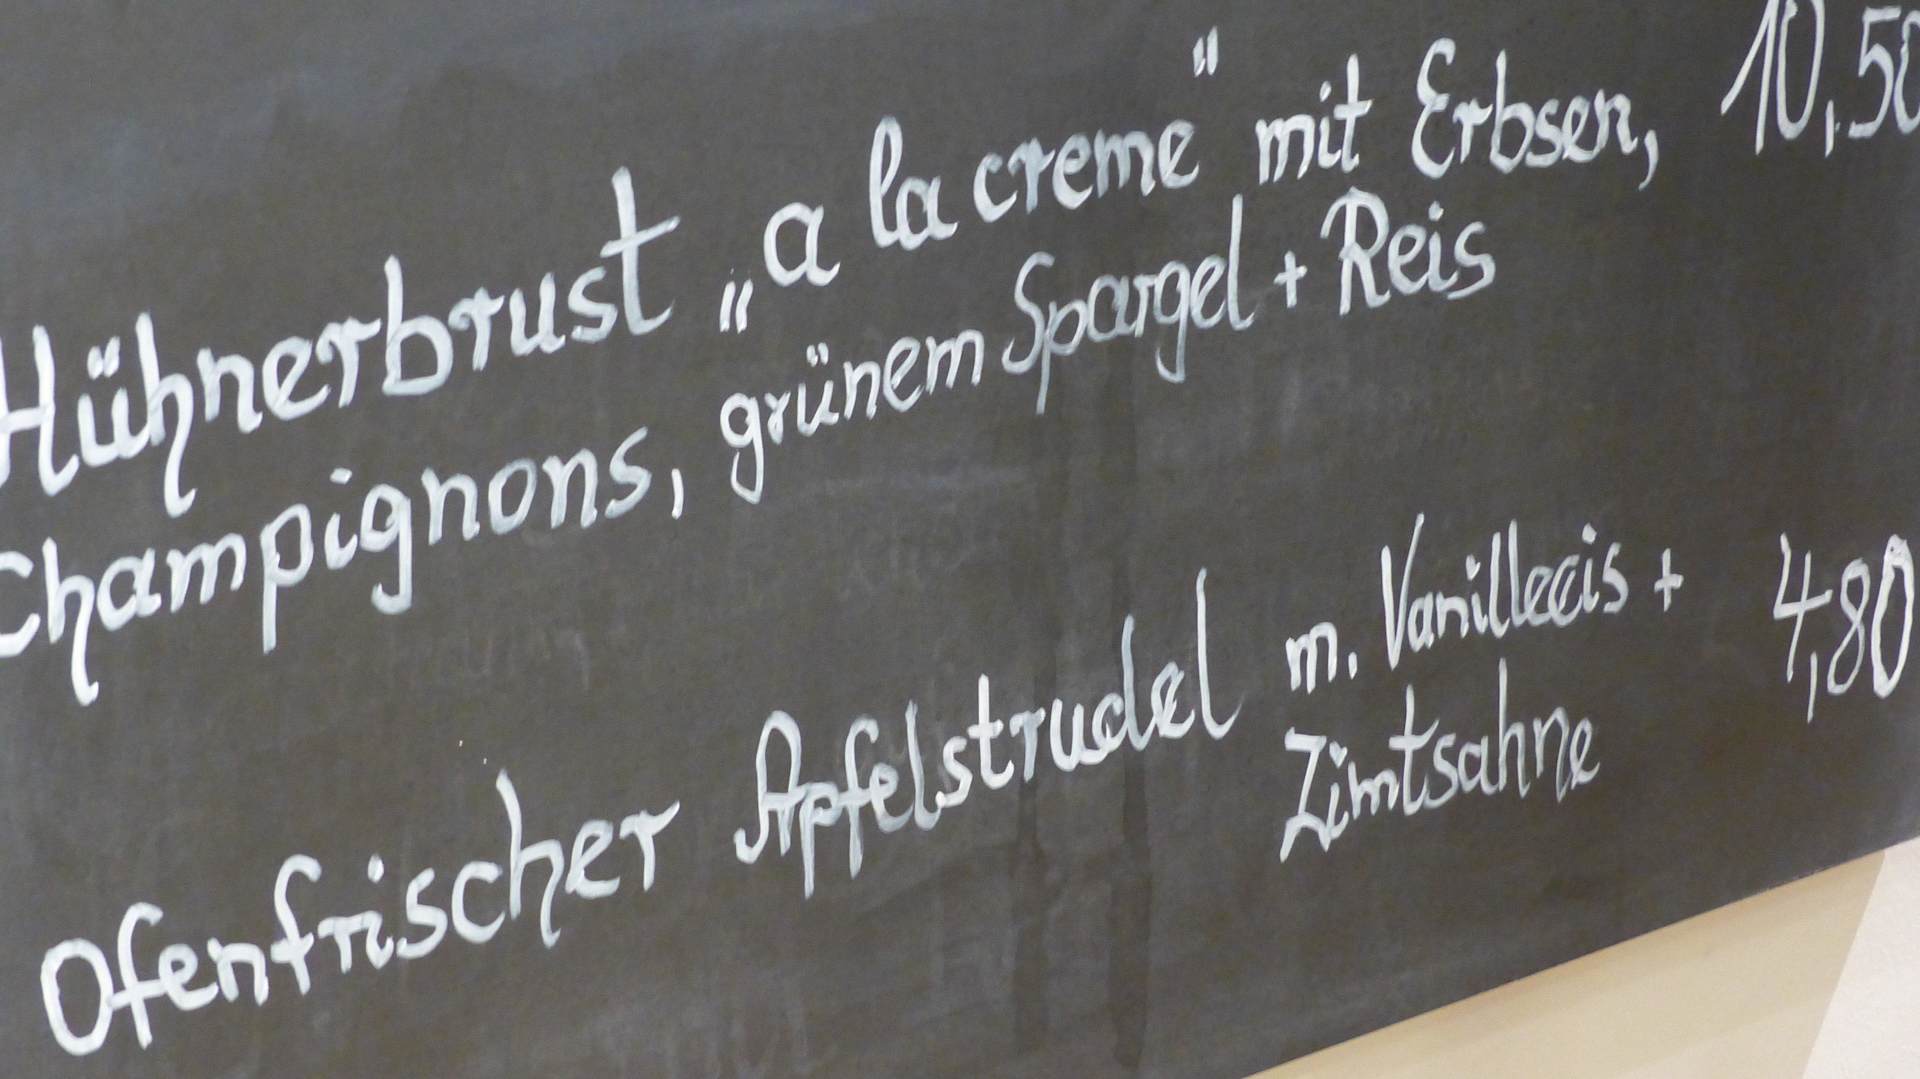 Hühnerbrust „a la creme" mit Erbsen, 10,50
Champignons, grünem Spargel + Reis
Ofenfrischer Apfelstrudel m. Vanilleeis + 4,80
Zimtsahne